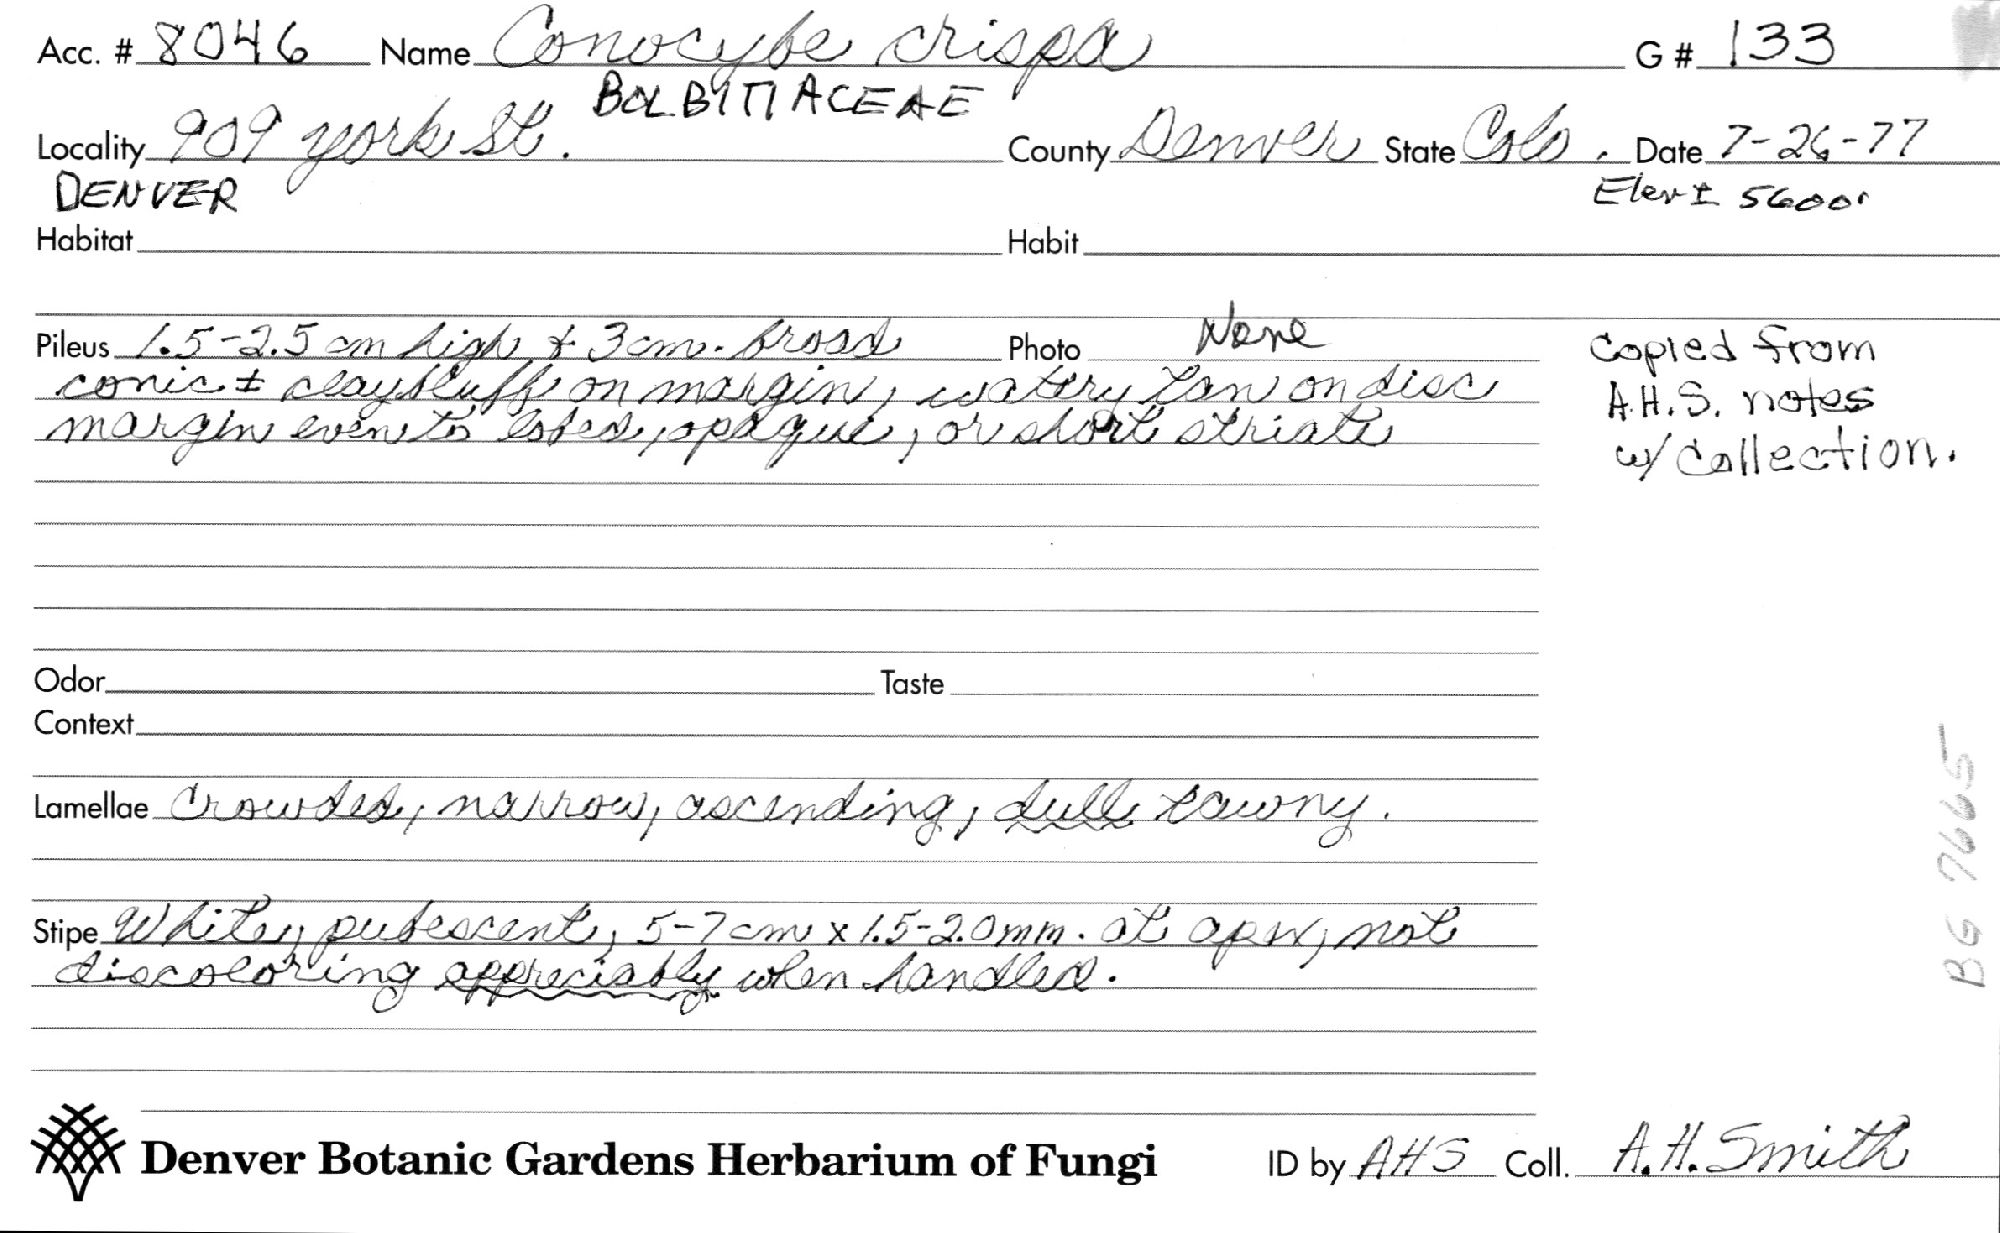 Acc. # 8046 Name Conocybe crispa G # 133
BOLBITIACEAE
Locality 909 York St. County Denver State Colo. Date 7-26-77
DENVER Elev ± 5600'
Habitat Habit
Pileus 1.5-2.5 cm high & 3 cm. broad Photo None
conic ± clay buff on margin, watery tan on disc
margin even to lobed, opaque, or short striate
Copied from
A.H.S. notes
w/ collection.
Odor Taste
Context
Lamellae Crowded, narrow, ascending, dull tawny.
Stipe White, pubescent, 5-7 cm x 1.5-2.0 mm. at apex, not
discoloring appreciably when handled.
BG 7665
Denver Botanic Gardens Herbarium of Fungi ID by AHS Coll. A.H. Smith